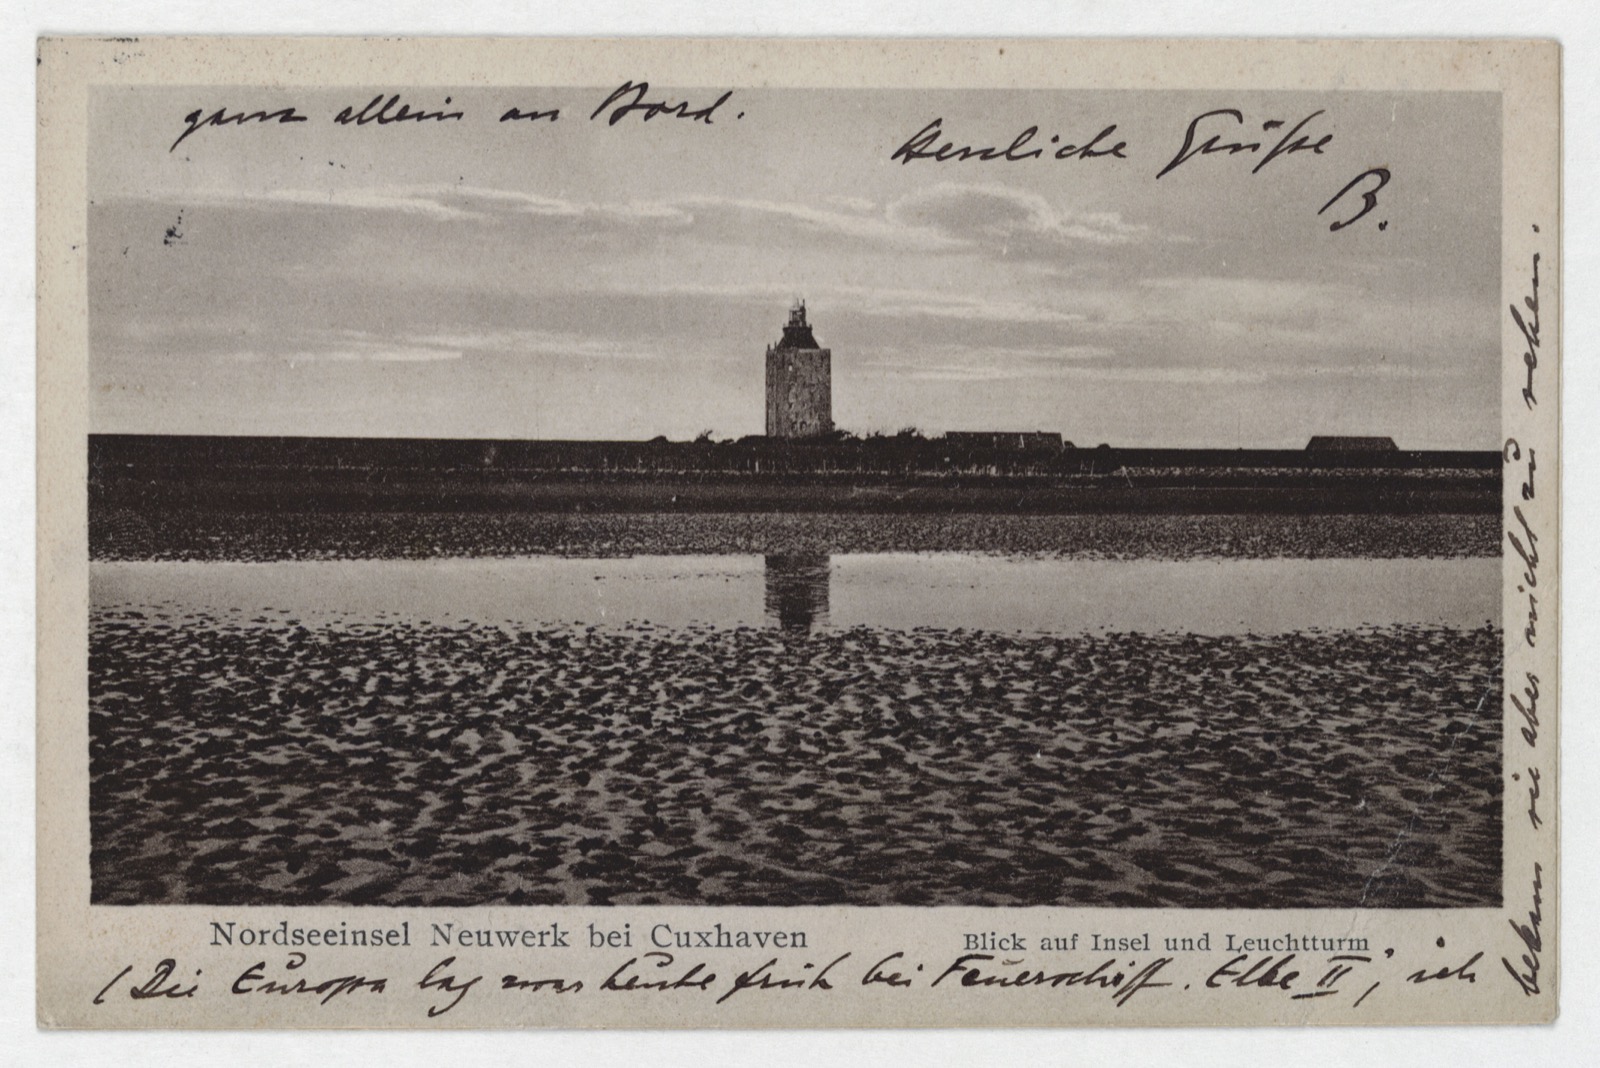 ganz allein an Bord.
Herzliche Grüße
B.
Nordseeinsel Neuwerk bei Cuxhaven
Blick auf Insel und Leuchtturm
(Die Europa lag zwar heute früh bei Feuerschiff Elbe II, ich
bekam sie aber nicht zu sehen.